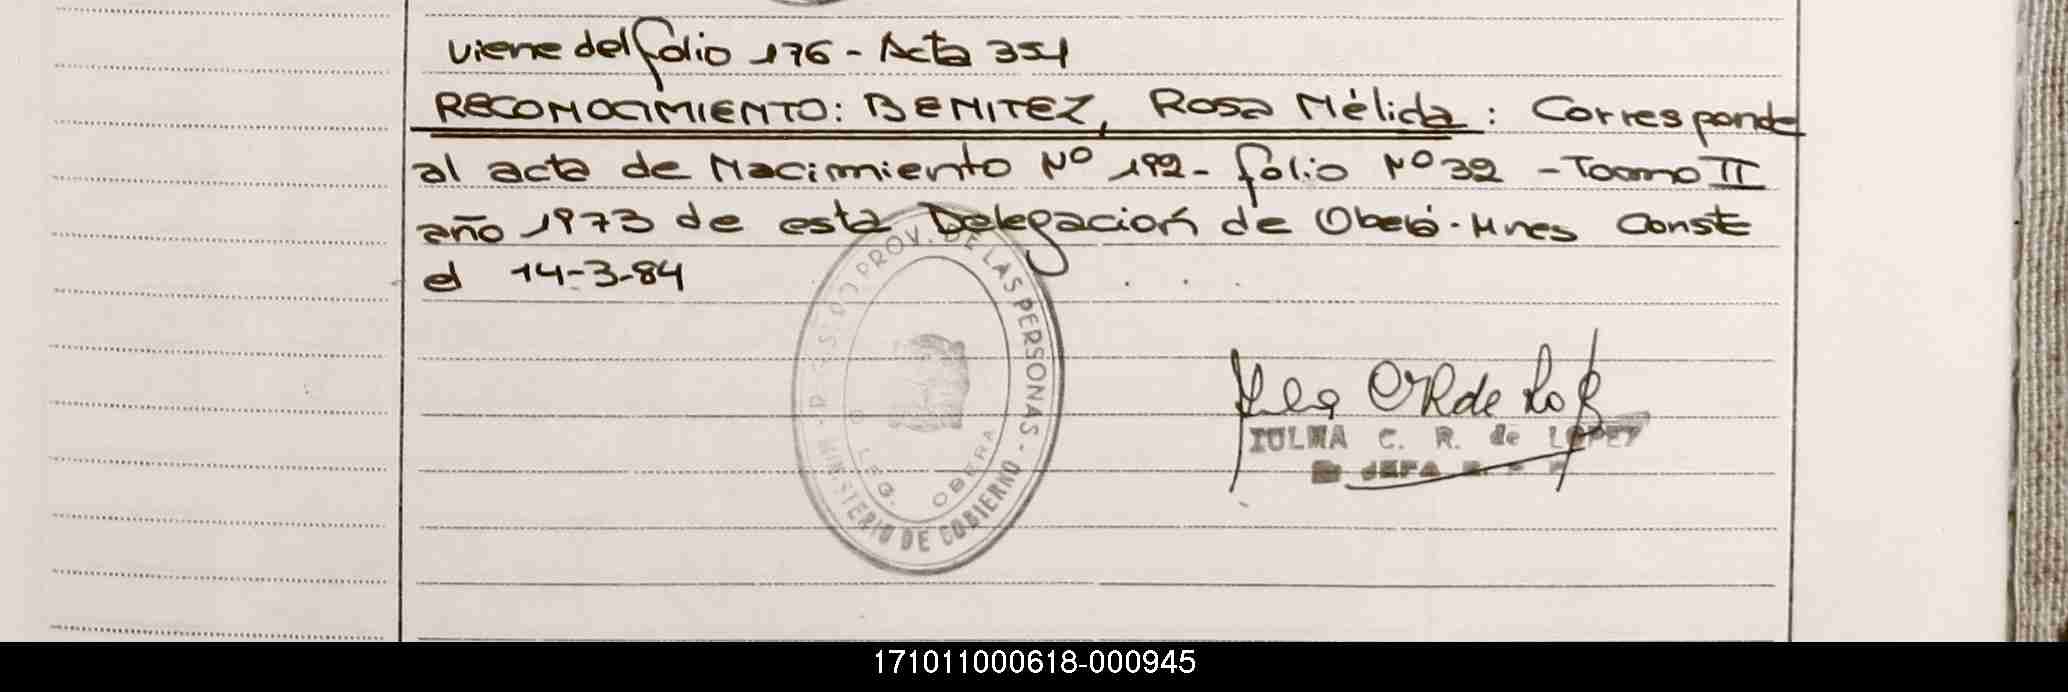 viene del folio 176 - Acta 354
RECONOCIMIENTO: BENITEZ, Rosa Nélida: Corresponde
al acta de Nacimiento Nº 192 - folio Nº 32 - Toomo II
año 1973 de esta Delegación de Oberá - Mnes Conste
el 14-3-84
PROV. DE LAS PERSONAS -
MINISTERIO DE GOBIERNO
DLEG. OBERA
C. R. de LOPEZ
JEFA
171011000618-000945